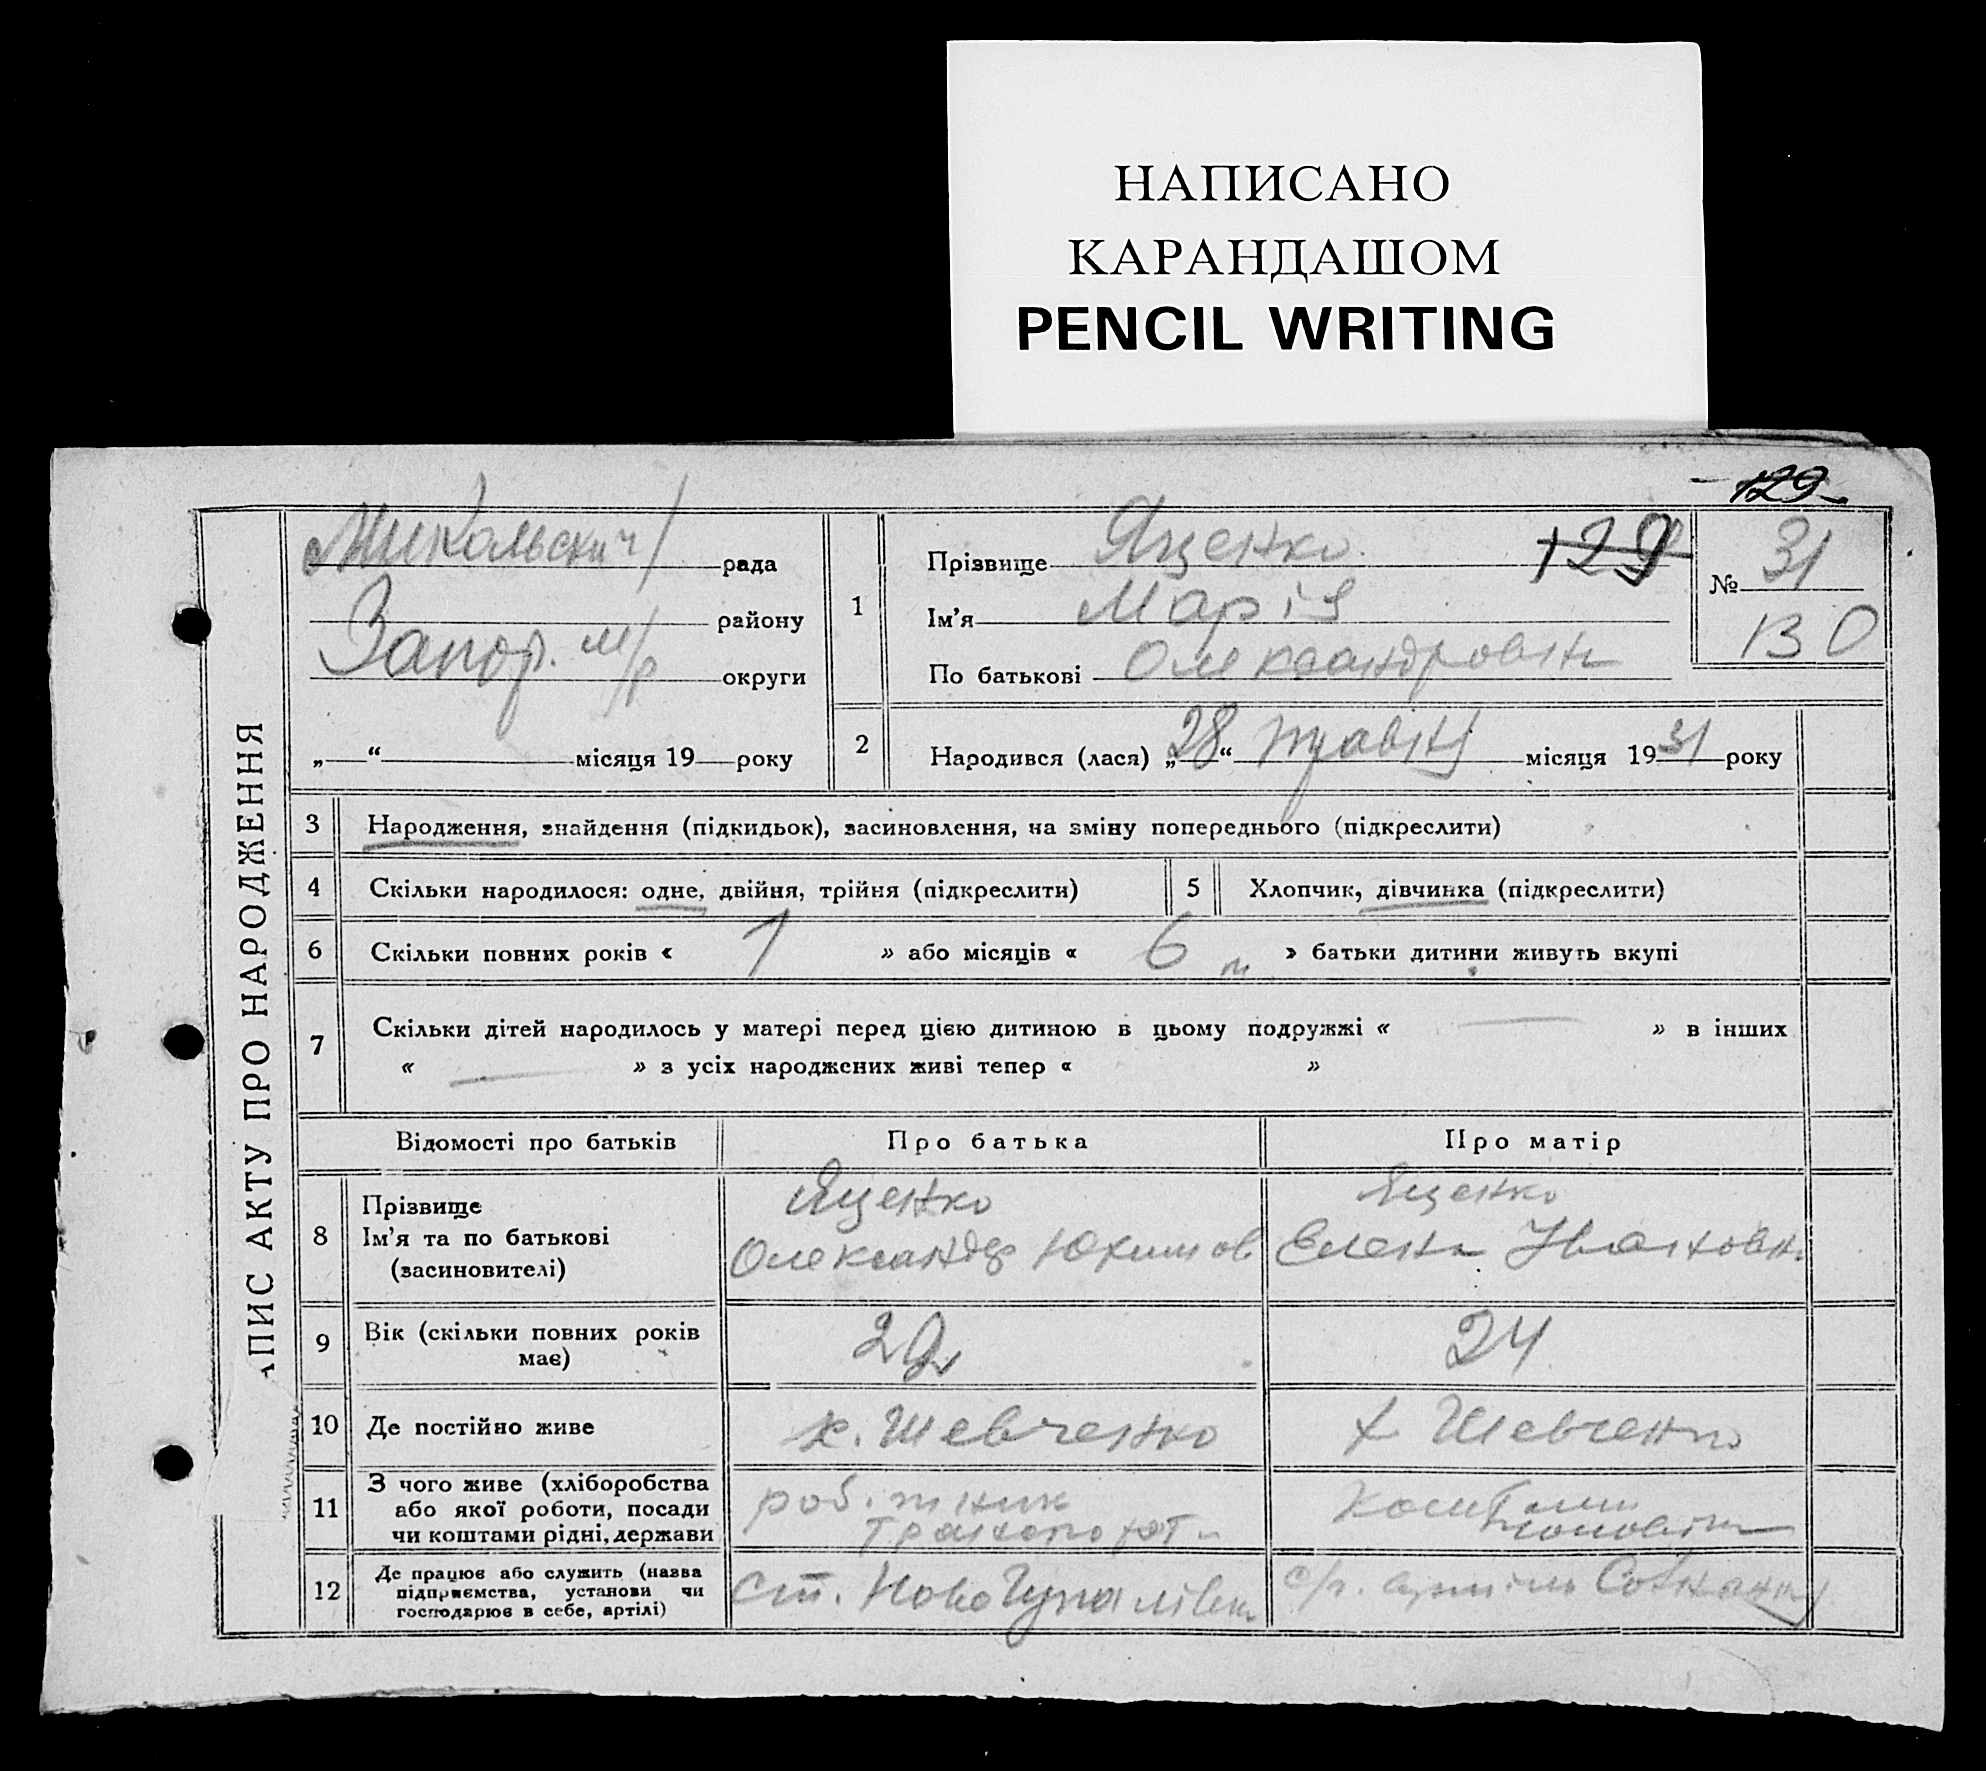 НАПИСАНО
КАРАНДАШОМ
PENCIL WRITING
- 129 -
ПИС АКТУ ПРО НАРОДЖЕННЯ
рада
Запор. м/р
району
округи
„ “ місяця 19 року
1
Прізвище Яценко 129
Ім’я Марія
По батькові Олександровна
№ 31
130
2
Народився (лася) „28“ травня місяця 1931 року
3 Народження, знайдення (підкидьок), засиновлення, на зміну попереднього (підкреслити)
4 Скільки народилося: одне, двійня, трійня (підкреслити) 5 Хлопчик, дівчинка (підкреслити)
6 Скільки повних років « 1 » або місяців « 6 м » батьки дитини живуть вкупі
7 Скільки дітей народилось у матері перед цією дитиною в цьому подружжі « — » в інших
« — » з усіх народжених живі тепер « »
Відомості про батьків Про батька Про матір
8 Прізвище
Ім’я та по батькові
(засиновителі)
Яценко
Олександр Юхимов
Яценко
Елена Ивановна
9 Вік (скільки повних років
має)
29
24
10 Де постійно живе х. Шевченко х Шевченко
11 З чого живе (хліборобства
або якої роботи, посади
чи коштами рідні, держави
робітник
транспорт
12 Де працює або служить (назва
підприємства, установи чи
господарює в себе, артілі)
ст. Ново Гупалівка
с/г. артіль